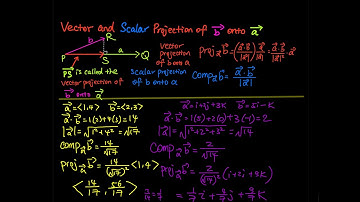 Vector and Scalar Projection of b⃗ onto a⃗
R
b
P S a Q
vector projection of b onto a
Proj_a⃗ b⃗ = (a⃗·b⃗/|a⃗|) a⃗/|a⃗| = a⃗·b⃗/|a⃗|² a⃗
PS is called the vector projection of b⃗ onto a⃗
scalar projection of b onto a
Comp_a⃗ b⃗ = a⃗·b⃗/|a⃗|
a⃗=<1,4> b⃗=<2,3>
a⃗·b⃗=1(2)+4(3)=14
|a⃗|=√1²+4²=√17
Comp_a⃗ b⃗=14/√17
Proj_a⃗ b⃗=14/(√17)²<1,4>
<14/17, 56/17>
a⃗=i+2j+3k b⃗=5i-k
a⃗·b⃗=1(5)+2(0)+3(-1)=2
|a⃗|=√1²+2²+3²=√14
Comp_a⃗ b⃗=2/√14
Proj_a⃗ b⃗=2/(√14)²(i+2j+3k)
=1/7 i+2/7 j+3/7 k